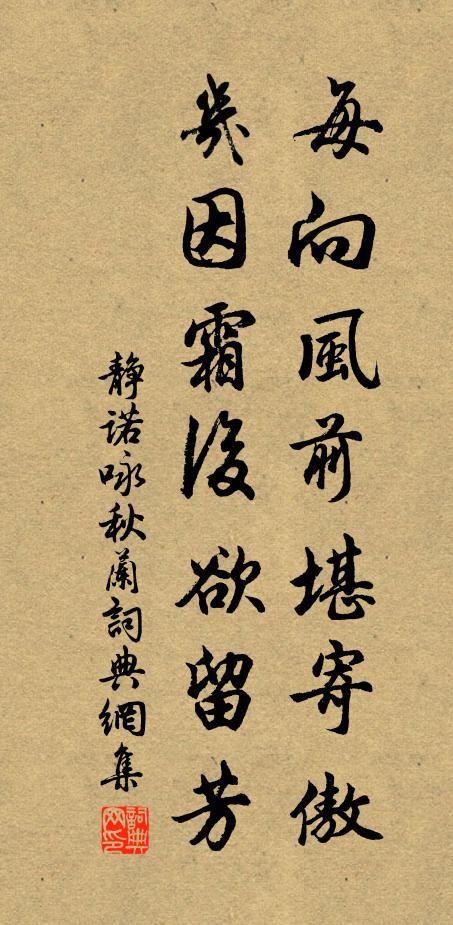 每向風前堪寄傲
幾因霜後欲留芳
静诺咏秋蘭詞典網集
詞典网印